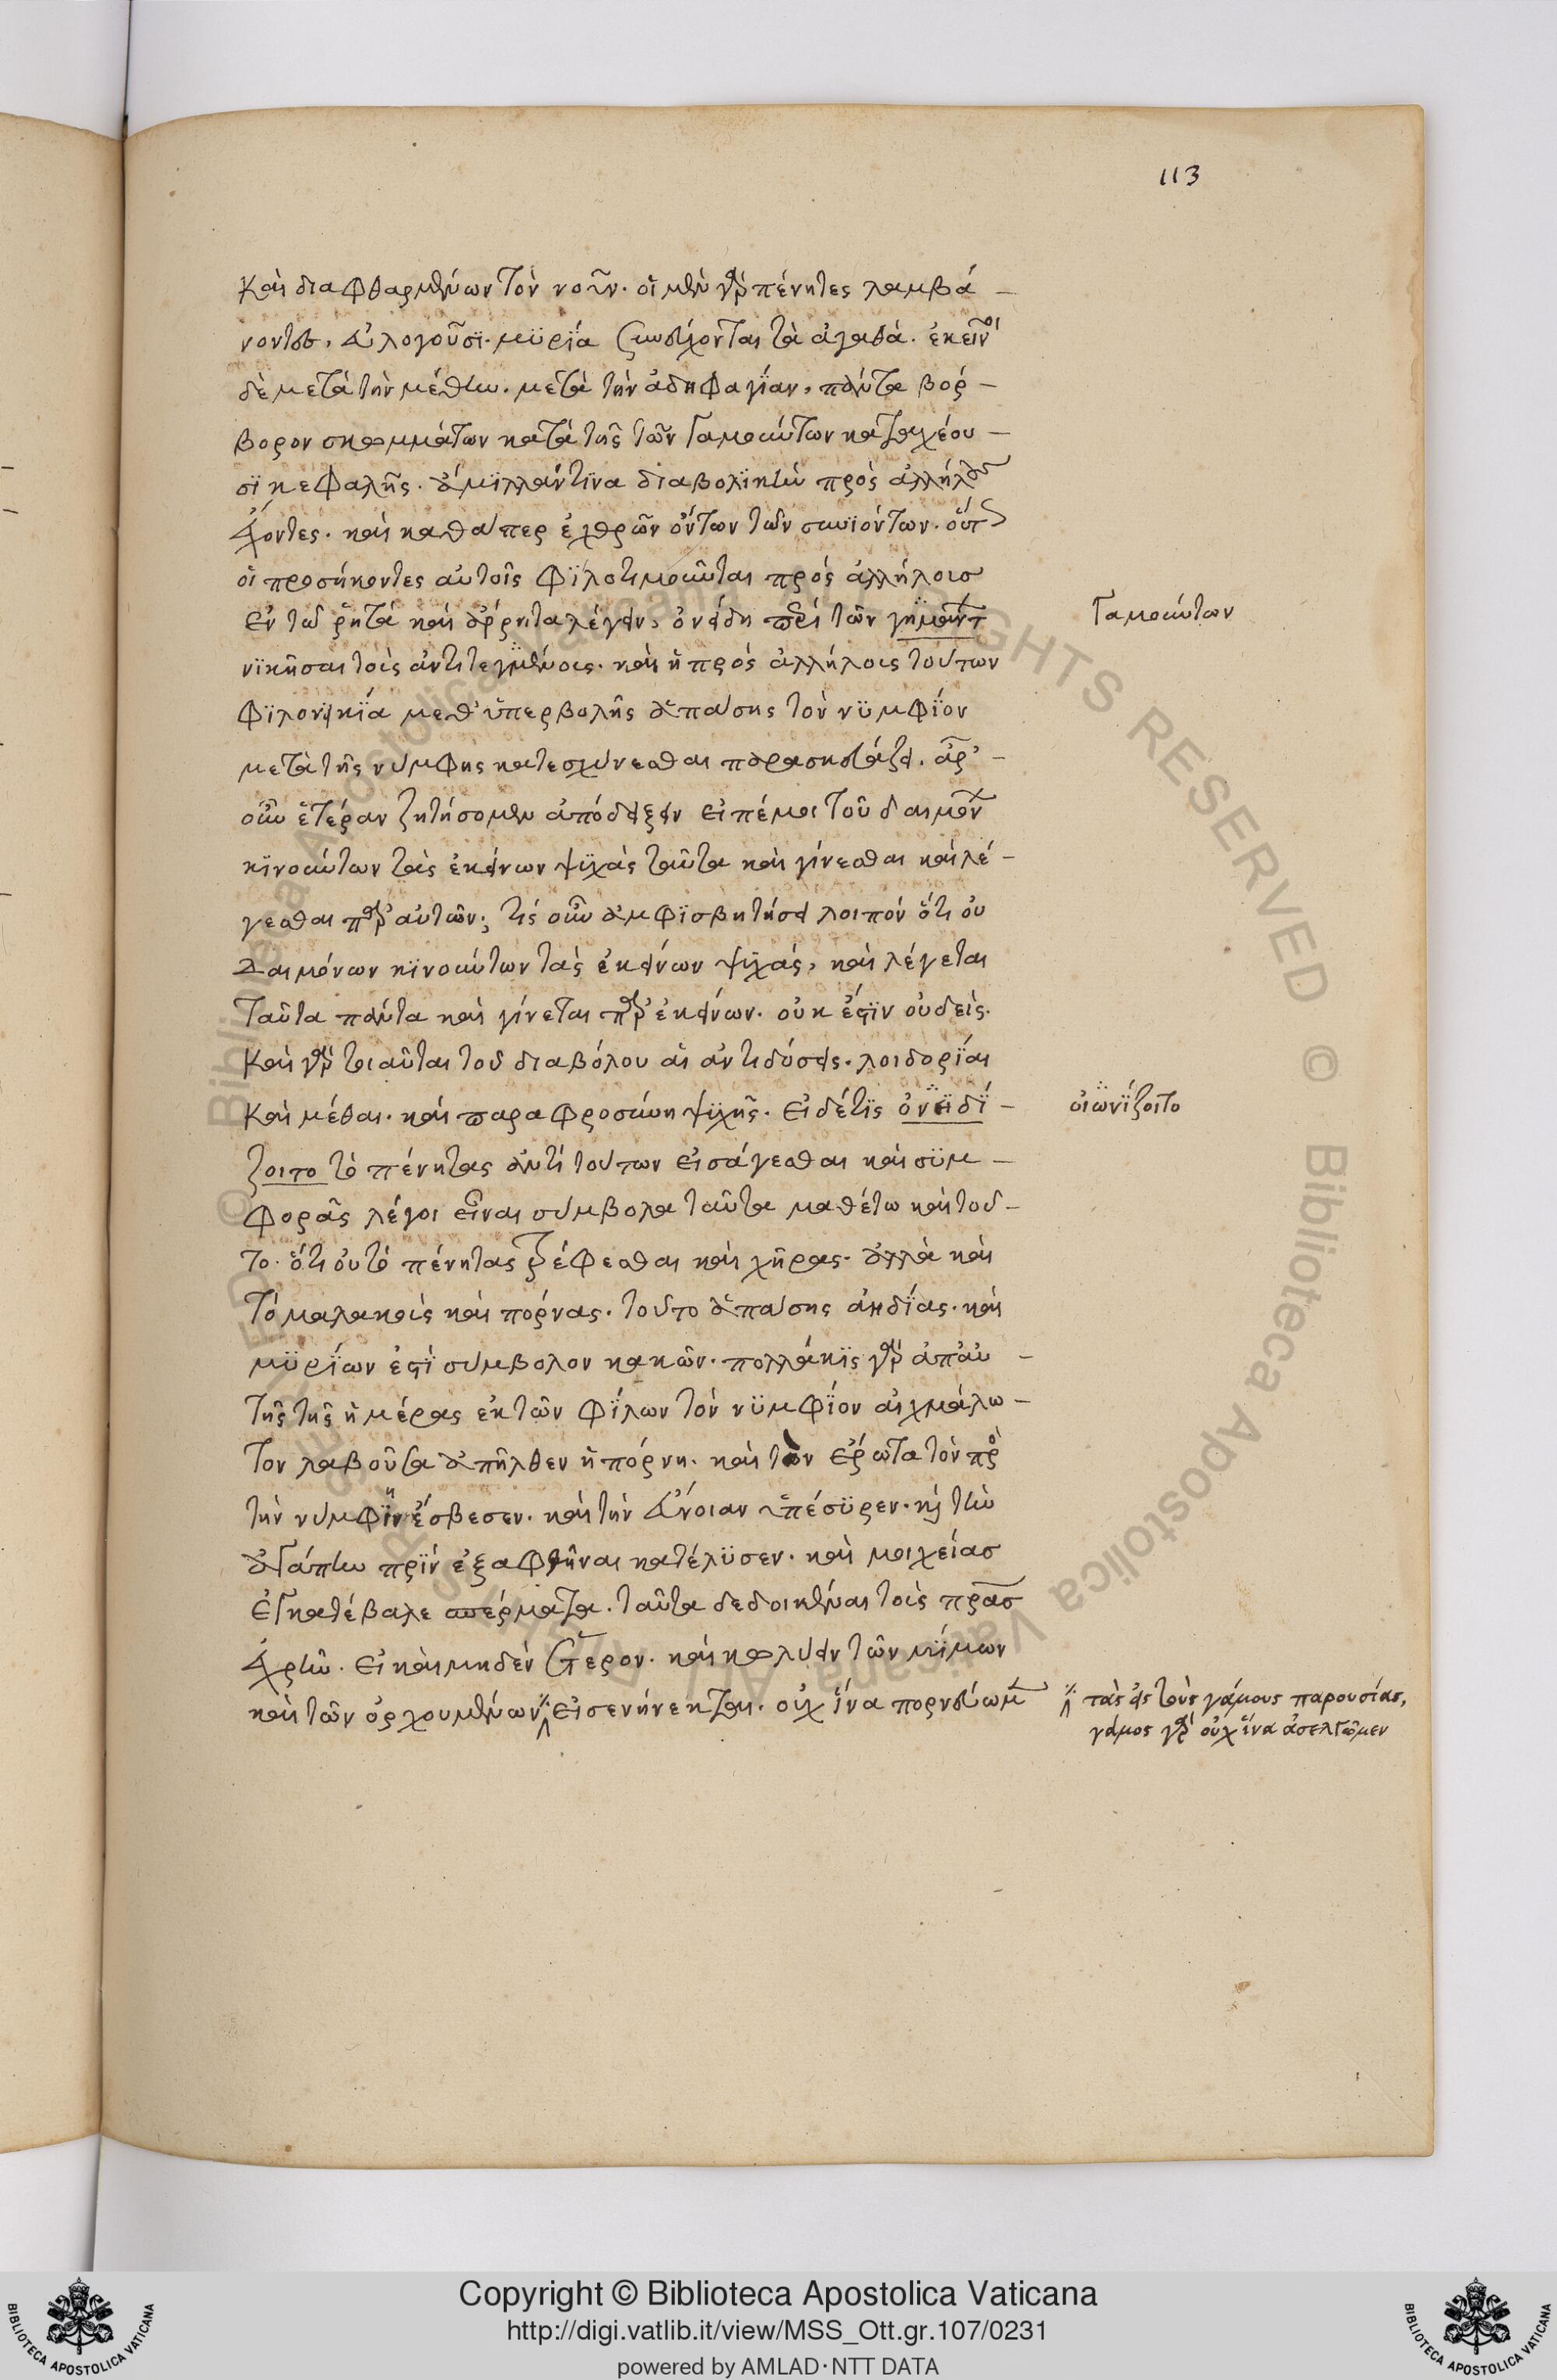 113
καὶ διαφθαρμένων τὸν νοῦν. οἱ μὲν γὰρ πένητες λαμβά –
νοντες, εὐλογοῦσϊ. μϋρΐα συνεύχονται τὰ ἀγαθά. ἐκεῖνοι
δὲ μετὰ τὴν μέθην. μετὰ τὴν ἀδηφαγΐαν, πάντα βόρ –
βορον σκωμμάτων κατὰ τῆς τῶν γαμούντων καταχέου –
σϊ κεφαλῆς. ἅμϊλλάν τϊνα διαβολϊκὴν πρὸς ἀλλήλους
ἔχοντες. καὶ καθάπερ ἐχθρῶν ὄντων τῶν συνϊόντων. οὕτως
οἱ προσήκοντες αὐτοῖς φϊλοτιμοῦνται πρὸς ἀλλήλους
ἐν τῶ ῥητὰ καὶ ἄρρητα λέγειν, ὀνείδη περὶ τῶν γημάντων
γαμούντων
νϊκῆσαι τοὺς ἀντιτεταγμένους. καὶ ἡ πρὸς ἀλλήλους τούτων
φϊλονεικΐα μεθ' ὑπερβολῆς ἁπάσης τὸν νϋμφΐον
μετὰ τῆς νύμφης κατεσχύνεσθαι παρασκευάζει. ἆρ' –
οὖν ἑτέραν ζητήσομεν ἀπόδειξιν εἰπέ μοι τοῦ δαιμόνων
κϊνούντων τὰς ἐκείνων ψϋχὰς ταῦτα καὶ γίνεσθαι καὶ λέ –
γεσθαι παρ' αὐτῶν; τίς οὖν ἀμφϊσβητήσει λοιπὸν ὅτι οὐ
δαιμόνων κϊνούντων τὰς ἐκείνων ψϋχάς, καὶ λέγεται
ταῦτα πάντα καὶ γίνεται παρ' ἐκείνων. οὐκ ἔστϊν οὐδείς.
καὶ γὰρ τοιαῦται τοῦ διαβόλου αἱ ἀντιδόσεις. λοιδορΐαι
καὶ μέθαι. καὶ παραφροσύνη ψϋχῆς. εἰ δέ τϊς ὀνειδΐ –
οἰωνΐζοιτο
ζοιτο τὸ πένητας ἀντὶ τούτων εἰσάγεσθαι καὶ σϋμ –
φορᾶς λέγοι εἶναι σύμβολα ταῦτα μαθέτω καὶ τοῦ –
το. ὅτι οὐ τὸ πένητας τρέφεσθαι καὶ χήρας. ἀλλὰ καὶ
τὸ μαλακοὺς καὶ πόρνας. τοῦτο ἁπάσης ἀηδΐας. καὶ
μϋρΐων ἐστϊ σύμβολον κακῶν. πολλάκϊς γὰρ ἀπ' αὐ –
τῆς τῆς ἡμέρας ἐκ τῶν φΐλων τὸν νϋμφΐον αἰχμάλω –
τον λαβοῦσα ἀπῆλθεν ἡ πόρνη. καὶ τὸν ἔρωτα τὸν πρὸς
τὴν νύμφην ἔσβεσεν. καὶ τὴν εὔνοιαν ὑπέσϋρεν. καὶ τὴν
ἀγάπην πρῒν ἐξαφθῆναι κατέλϋσεν. καὶ μοιχείας
ἐγκατέβαλε σπέρματα. ταῦτα δεδοικέναι τοὺς πρας
ἐχρῆν. εἰ καὶ μηδὲν ἕτερον. καὶ κωλύειν τῶν μΐμων
καὶ τῶν ὀρχουμένων ⁒ εἰσενήνεκται. οὐχ ἵνα πορνεύωμεν
⁒ τὰς εἰς τοὺς γάμους παρουσίας,
γάμος γὰρ οὐχ ἵνα ἀσελγῶμεν
Copyright © Biblioteca Apostolica Vaticana
http://digi.vatlib.it/view/MSS_Ott.gr.107/0231
powered by AMLAD·NTT DATA